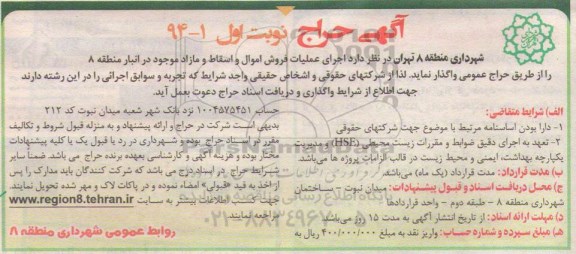 آگهی حراج نوبت اول ۱-۹۴
شهرداری منطقه ۸ تهران در نظر دارد اجرای عملیات فروش اموال و اسقاط و مازاد موجود در انبار منطقه ۸
را از طریق حراج عمومی واگذار نماید. لذا از شرکتهای حقوقی و اشخاص حقیقی واجد شرایط که تجربه و سوابق اجرائی را در این رشته دارند
جهت اطلاع از شرایط واگذاری و دریافت اسناد حراج دعوت بعمل آید.
الف) شرایط متقاضی:
۱- دارا بودن اساسنامه مرتبط با موضوع جهت شرکتهای حقوقی
۲- تعهد به اجرای دقیق ضوابط و مقررات زیست محیطی (HSE) و مدیریت
یکپارچه بهداشت، ایمنی و محیط زیست در قالب الزامات پروژه ها می‌باشد.
ب) مدت قرارداد: مدت قرارداد (یک ماه) می‌باشد.
ج) محل دریافت اسناد و قبول پیشنهادات: میدان نبوت - ساختمان
شهرداری منطقه ۸ - طبقه دوم - واحد قراردادها
د) مهلت ارائه اسناد: از تاریخ انتشار آگهی به مدت ۱۵ روز می‌باشد
هـ) مبلغ سپرده و شماره حساب: واریز نقد به مبلغ ۴۰۰/۰۰۰/۰۰۰ ریال به
حساب ۱۰۰۴۵۷۵۴۵۱ نزد بانک شهر شعبه میدان نبوت کد ۲۱۲
بدیهی است شرکت در حراج و ارائه پیشنهاد و به منزله قبول شروط و تکالیف
مقرر در اسناد حراج بوده و شهرداری در رد یا قبول یک یا کلیه پیشنهادات
مختار بوده و هزینه آگهی و کارشناسی بعهده برنده حراج می باشد. ضمناً سایر
شرایط حراج در اسناد درج می باشد که شرکت کنندگان باید مدارک را پس
از اخذ به قید «قبولی» امضاء نموده و در پاکات لاک و مهر شده تحویل نمایند.
جهت کسب اطلاعات بیشتر به سایت www.region8.tehran.ir
مراجعه نمایند
روابط عمومی شهرداری منطقه ۸
۰۲۱-۸۸۳۴۹۶۷۰